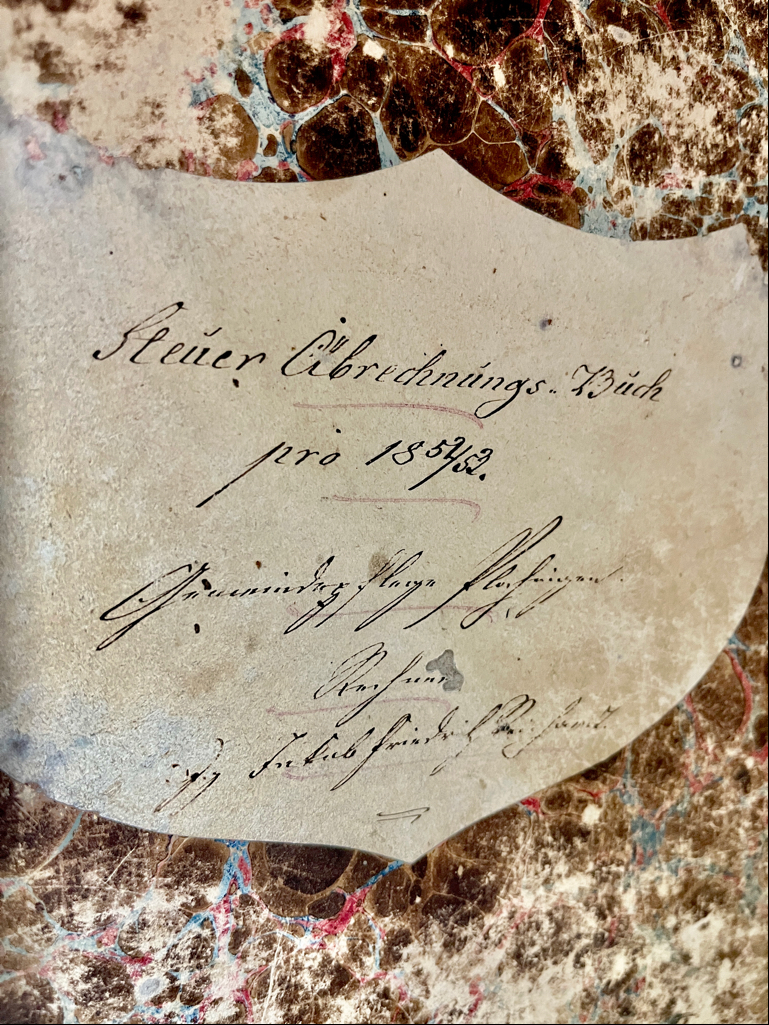 Steuer Abrechnungs-Buch
pro 1852/53.
Gemeindepflege Plochingen.
Rechner
Jakob Friedrich